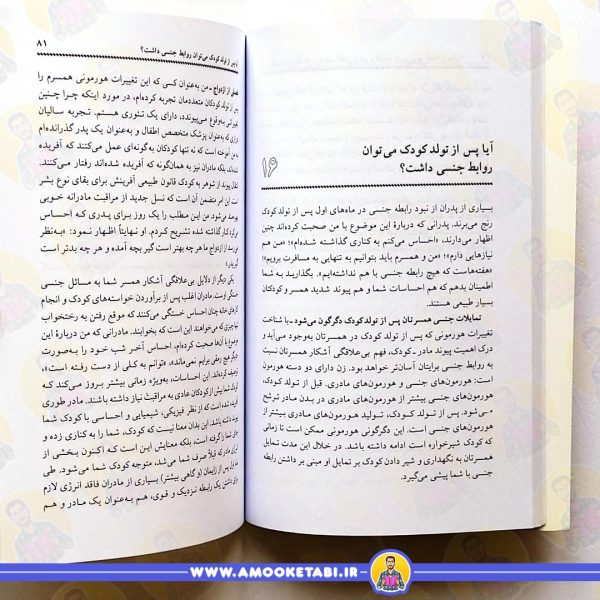 آیا پس از تولد کودک می‌توان
روابط جنسی داشت؟
۱۶
بسیاری از پدران از نبود رابطه جنسی در ماه‌های اول پس از تولد کودک
رنج می‌برند. پدرانی که دربارهٔ این موضوع با من صحبت کرده‌اند چنین
اظهار می‌دارند، «احساس می‌کنم به کناری گذاشته شده‌ام»؛ «من هم
نیازهایی دارم»؛ «من و همسرم باید بتوانیم به تنهایی به مسافرت برویم»؛
«هفته‌هاست که هیچ رابطه جنسی با هم نداشته‌ایم». بگذارید به شما
اطمینان بدهم که هم احساسات شما و هم پیوند شدید همسر و کودکتان
بسیار طبیعی هستند.
تمایلات جنسی همسرتان پس از تولد کودک دگرگون می‌شود ـ با شناخت
تغییرات هورمونی که پس از تولد کودک در همسرتان به‌وجود می‌آید و
درک اهمیت پیوند مادر ـ کودک، فهم بی‌علاقگی آشکار همسرتان نسبت
به روابط جنسی برایتان آسان‌تر خواهد بود. زن دارای دو دسته هورمون
است: هورمون‌های جنسی و هورمون‌های مادری. قبل از تولد کودک،
هورمون‌های جنسی بیشتر از هورمون‌های مادری در بدن مادر ترشح
می‌شود. پس از تولد کودک، تولید هورمون‌های مادری بیشتر از
هورمون‌های جنسی است. این دگرگونی هورمونی ممکن است تا زمانی
که کودک شیرخواره است ادامه داشته باشد. در خلال این مدت تمایل
همسرتان به نگهداری و شیر دادن کودک بر تمایل او مبنی بر داشتن رابطه
جنسی با شما پیشی می‌گیرد.
آیا پس از تولد کودک می‌توان روابط جنسی داشت؟ ۸۱
عملی از ازدواج ـ من به‌عنوان کسی که این تغییرات هورمونی همسرم را
پس از تولد کودکان متعددمان تجربه کرده‌ام، در مورد اینکه چرا چنین
تغییراتی به‌وقوع می‌پیوندد، دارای یک تئوری هستم. تجربه سالیان
به‌عنوان پزشک متخصص اطفال و به‌عنوان یک پدر گذرانده‌ام
به من آموخته است که نه تنها کودکان به‌گونه‌ای عمل می‌کنند که آفریده
شده‌اند، بلکه مادران نیز به همانگونه که آفریده شده‌اند رفتار می‌کنند.
پیوند از شوهر به کودک قانون طبیعی آفرینش برای بقای نوع بشر
است این امر متضمن آن است که نسل جدید از مراقبت مادرانه خوبی
می‌شود. من این مطلب را یک روز برای پدری که احساس
کنار گذاشته شده تشریح کردم. او نهایتاً اظهار نمود: «به‌نظر
از ازدواج ما هر چه بهتر است گیر بچه آمده و هر چه بدتر است
یکی دیگر از دلایل بی‌علاقگی آشکار همسر شما به مسائل جنسی
خستگی اوست. مادران اغلب پس از برآوردن خواسته‌های کودک و انجام
کارهای خانه چنان احساس خستگی می‌کنند که موقع رفتن به رختخواب
تنها چیزی که می‌خواهند این است که بخوابند. مادرانی که من دربارهٔ این
موضوع با آن‌ها صحبت کرده‌ام، احساس آخر شب خود را به‌صورت
«دیگر هیچ رمقی برایم نمی‌ماند»، «توانم به کلی از دست رفته است»،
توصیف کرده‌اند. این احساسات، به‌ویژه زمانی بیشتر بروز می‌کند که
کودک شما بیش از کودکان عادی به مراقبت نیاز داشته باشند. مادر طوری
آفریده شده است که از نظر فیزیکی، شیمیایی و احساسی با کودک شما
پیوند داشته باشد. این بدان معنا نیست که کودک، شما را به کناری زده و
گرفته است، بلکه معنایش این است که اکنون بخشی از
که قبلاً صرف شما می‌شد، متوجه کودک شما می‌شود. طی
ماه اول پس از زایمان (و گاهی بیشتر) بسیاری از مادران فاقد انرژی لازم
برای داشتن یک رابطه نزدیک و قوی، هم به‌عنوان یک مادر و هم
WWW.AMOOKETABI.IR